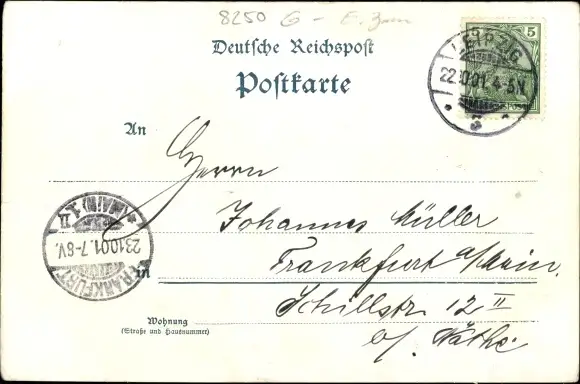 8250 G -
Deutsche Reichspost
Postkarte
5
LEIPZIG
22.10.01. 4-5N
* 3 *
An
Herrn
Johannes Müller
Frankfurt a/Main.
in
Schillstr 12 II
b/. Käthe
Wohnung
(Straße und Hausnummer)
FRANKFURT
(MAIN) 1.
II
23.10.01. 7-8V.